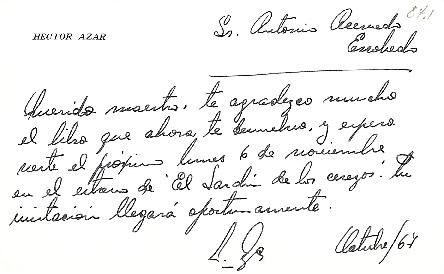 871
HECTOR AZAR
Sr. Antonio Acevedo
Escobedo
Querido maestro, te agradezco mucho
el libro que ahora, te devuelvo, y espero
verte el próximo lunes 6 de noviembre
en el estreno de "El Jardín de los cerezos". Tu
invitación llegará oportunamente.
Octubre/67